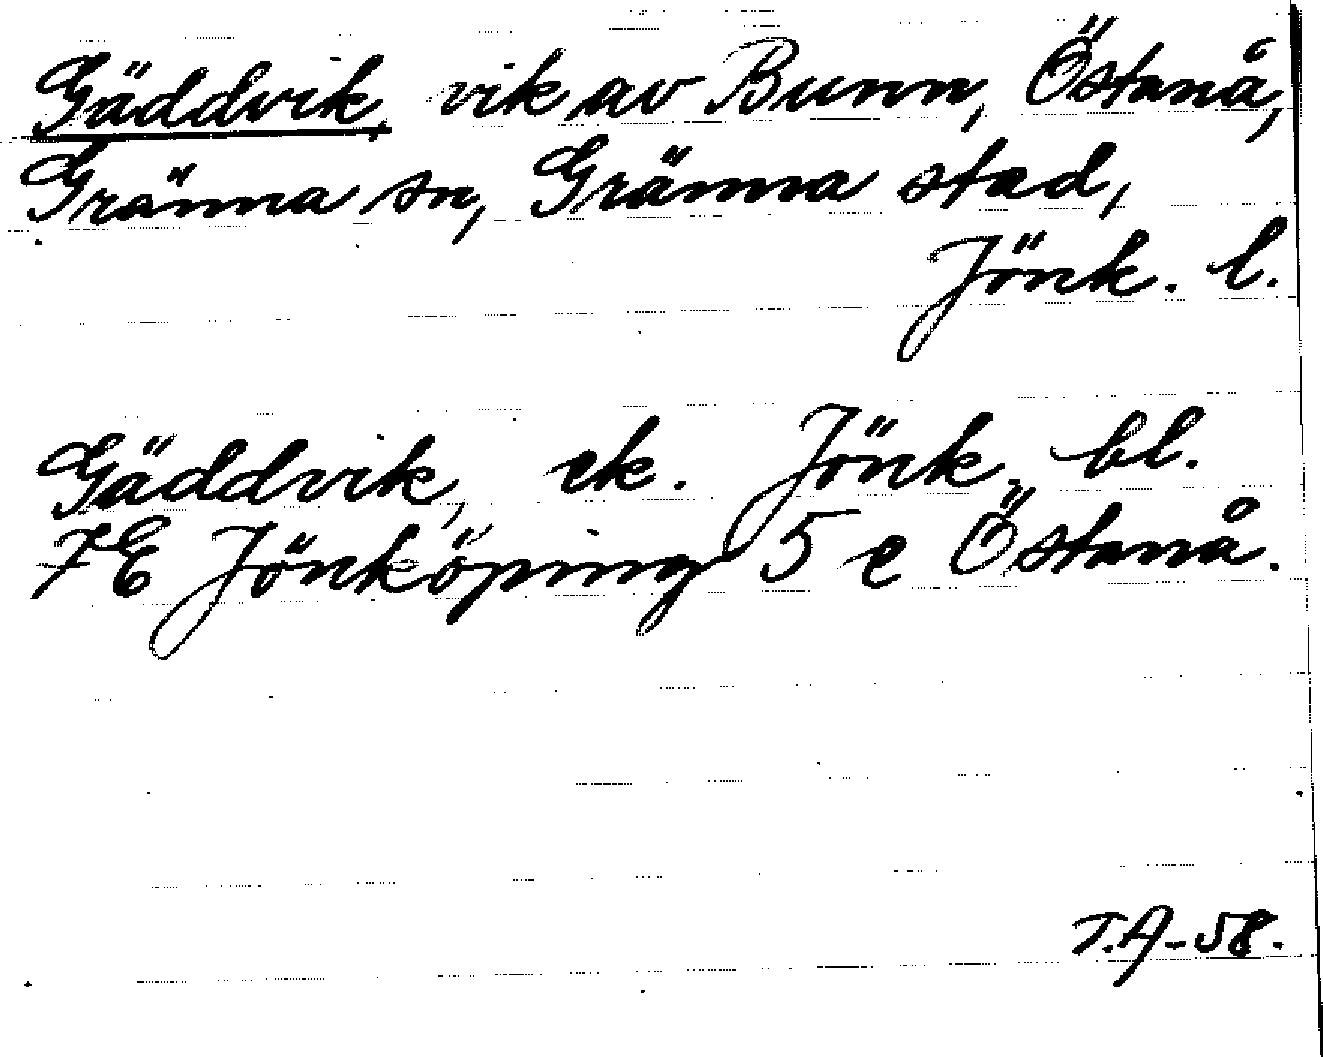 Gäddvik, vik av Bunn, Östanå,
Gränna sn, Gränna stad,
Jönk. l.
Gäddvik, ek. Jönk. bl.
7E Jönköping 5 e Östanå.
T.A-58.